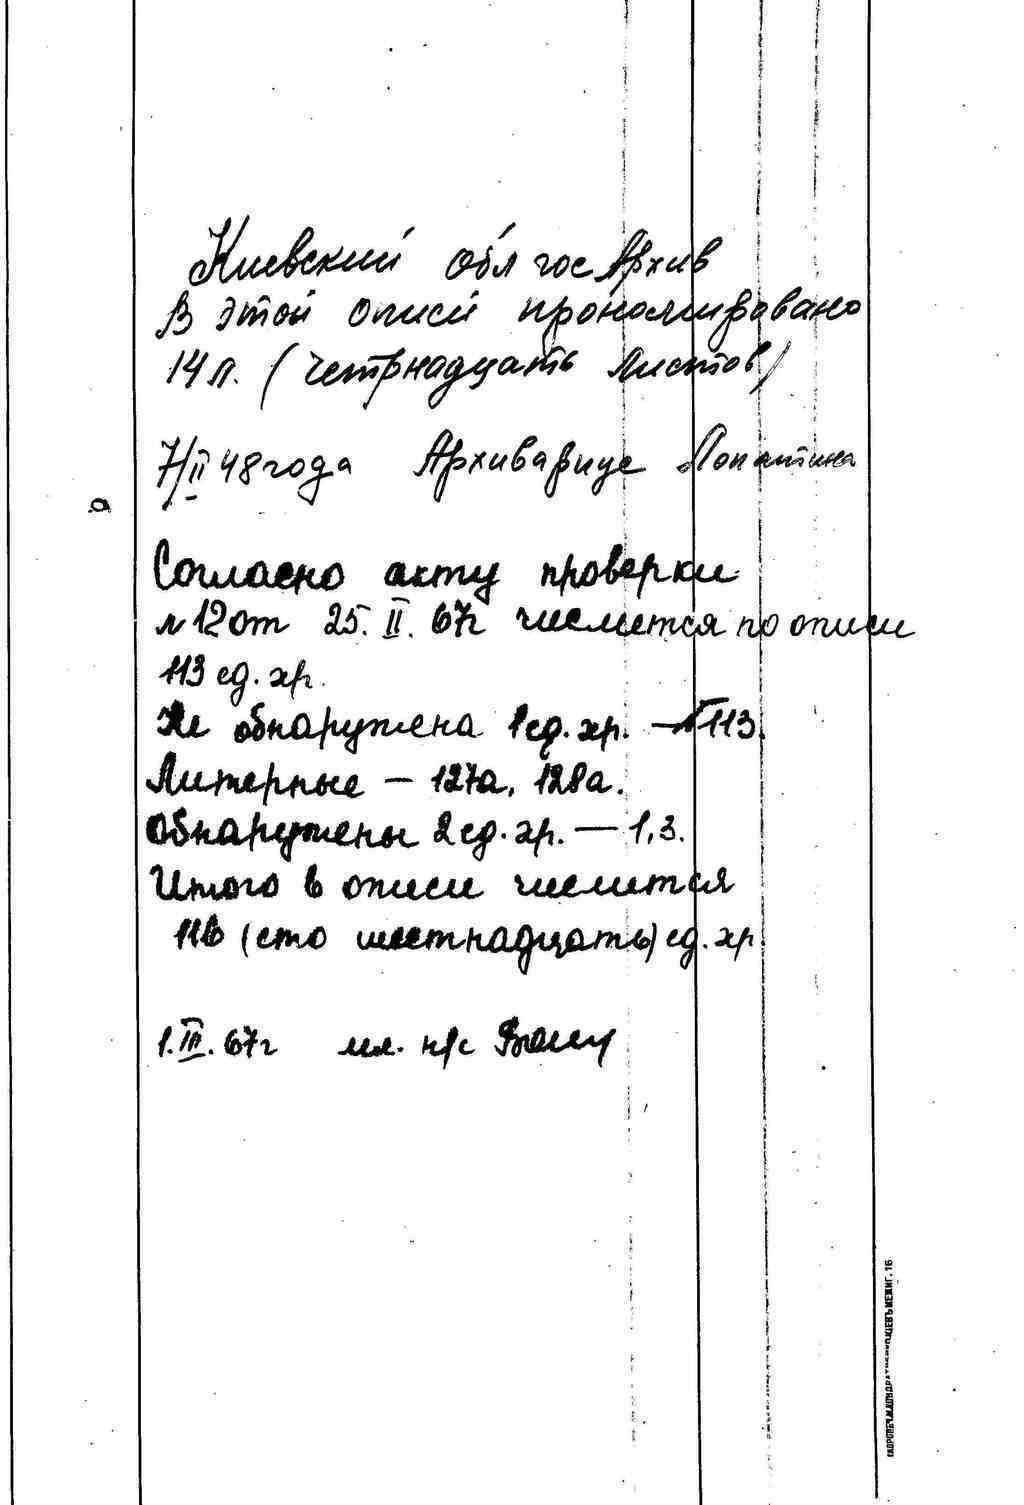 Киевский облгосАрхив
В этой описи прономировано
14 л. (четрнадцать листов)
7/II 48 года Архивариус Лопатина
Согласно акту проверки
№ 12 от 25. II. 67г числится по описи
113 ед. хр.
Не обнаружена 1 ед. хр. — № 113.
Литерные — 127а, 128а.
Обнаружены 2 ед. хр. — 1, 3.
Итого в описи числится
116 (сто шестнадцать) ед. хр.
1. III. 67г мл. н/с